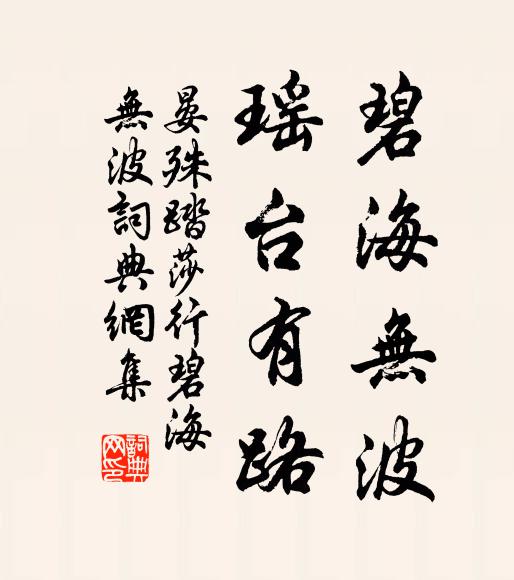 碧海無波
瑶台有路
晏殊踏莎行碧海
無波詞典網集
詞典
网印